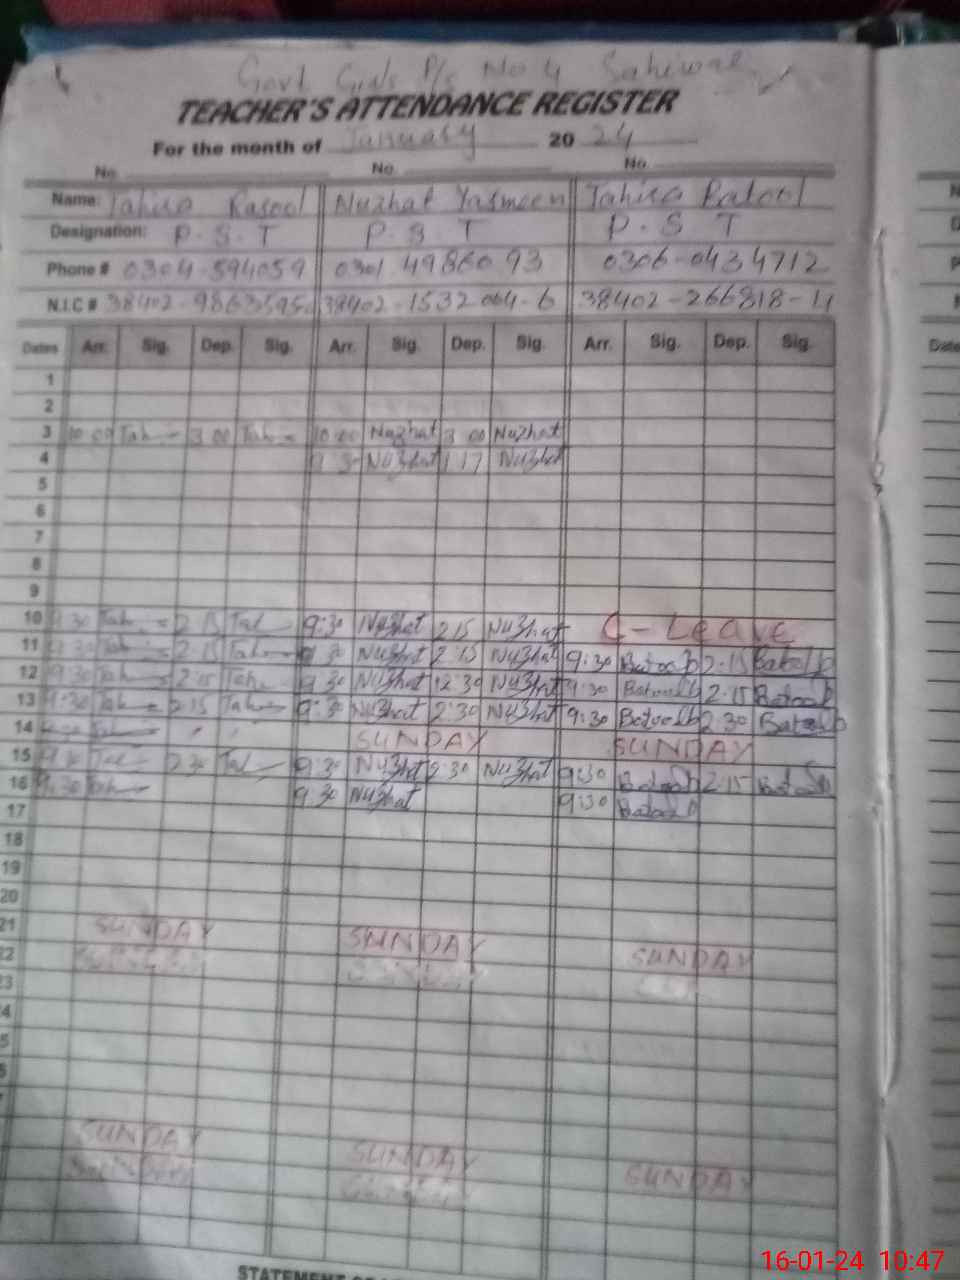 Govt Girls P/s No 4 Sahiwal
TEACHER'S ATTENDANCE REGISTER
For the month of January 20 24
No. No. No.
Name: Tahira Rasool Nuzhat Yasmeen Tahira Batool
Designation: P.S.T P.S.T P.S.T
Phone # 0304-594059 0301 4986093 0306-0434712
N.I.C # 38402-9863595 38402-1532064-6 38402-266818-4
Dates Arr. Sig. Dep. Sig. Arr. Sig. Dep. Sig. Arr. Sig. Dep. Sig.
1
2
3 10:00 Tah 3 00 Tah 10:00 Nuzhat 3 00 Nuzhat
4 9:30 Nuzhat 1 17 Nuzhat
5
6
7
8
9
10 9:30 Tah 2 15 Tah 9:30 Nuzhat 2 15 Nuzhat C-Leave
11 9:30 Tah 2:15 Tah 9:30 Nuzhat 2:15 Nuzhat 9:30 Batool 2-15 Batool
12 9:30 Tah 2:15 Tah 9:30 Nuzhat 12:30 Nuzhat 9:30 Batool 2-15 Batool
13 9:30 Tah 2 15 Tah 9:30 Nuzhat 2:30 Nuzhat 9:30 Batool 2 30 Batool
14 SUNDAY SUNDAY
15 Tah 2 30 Tah 9:30 Nuzhat 2:30 Nuzhat 9:30 Batool 2 15 Batool
16 9:30 Tah 9:30 Nuzhat 9:30 Batool
17
18
19
20
21 SUNDAY SUNDAY SUNDAY
22
23
SUNDAY SUNDAY SUNDAY
16-01-24 10:47